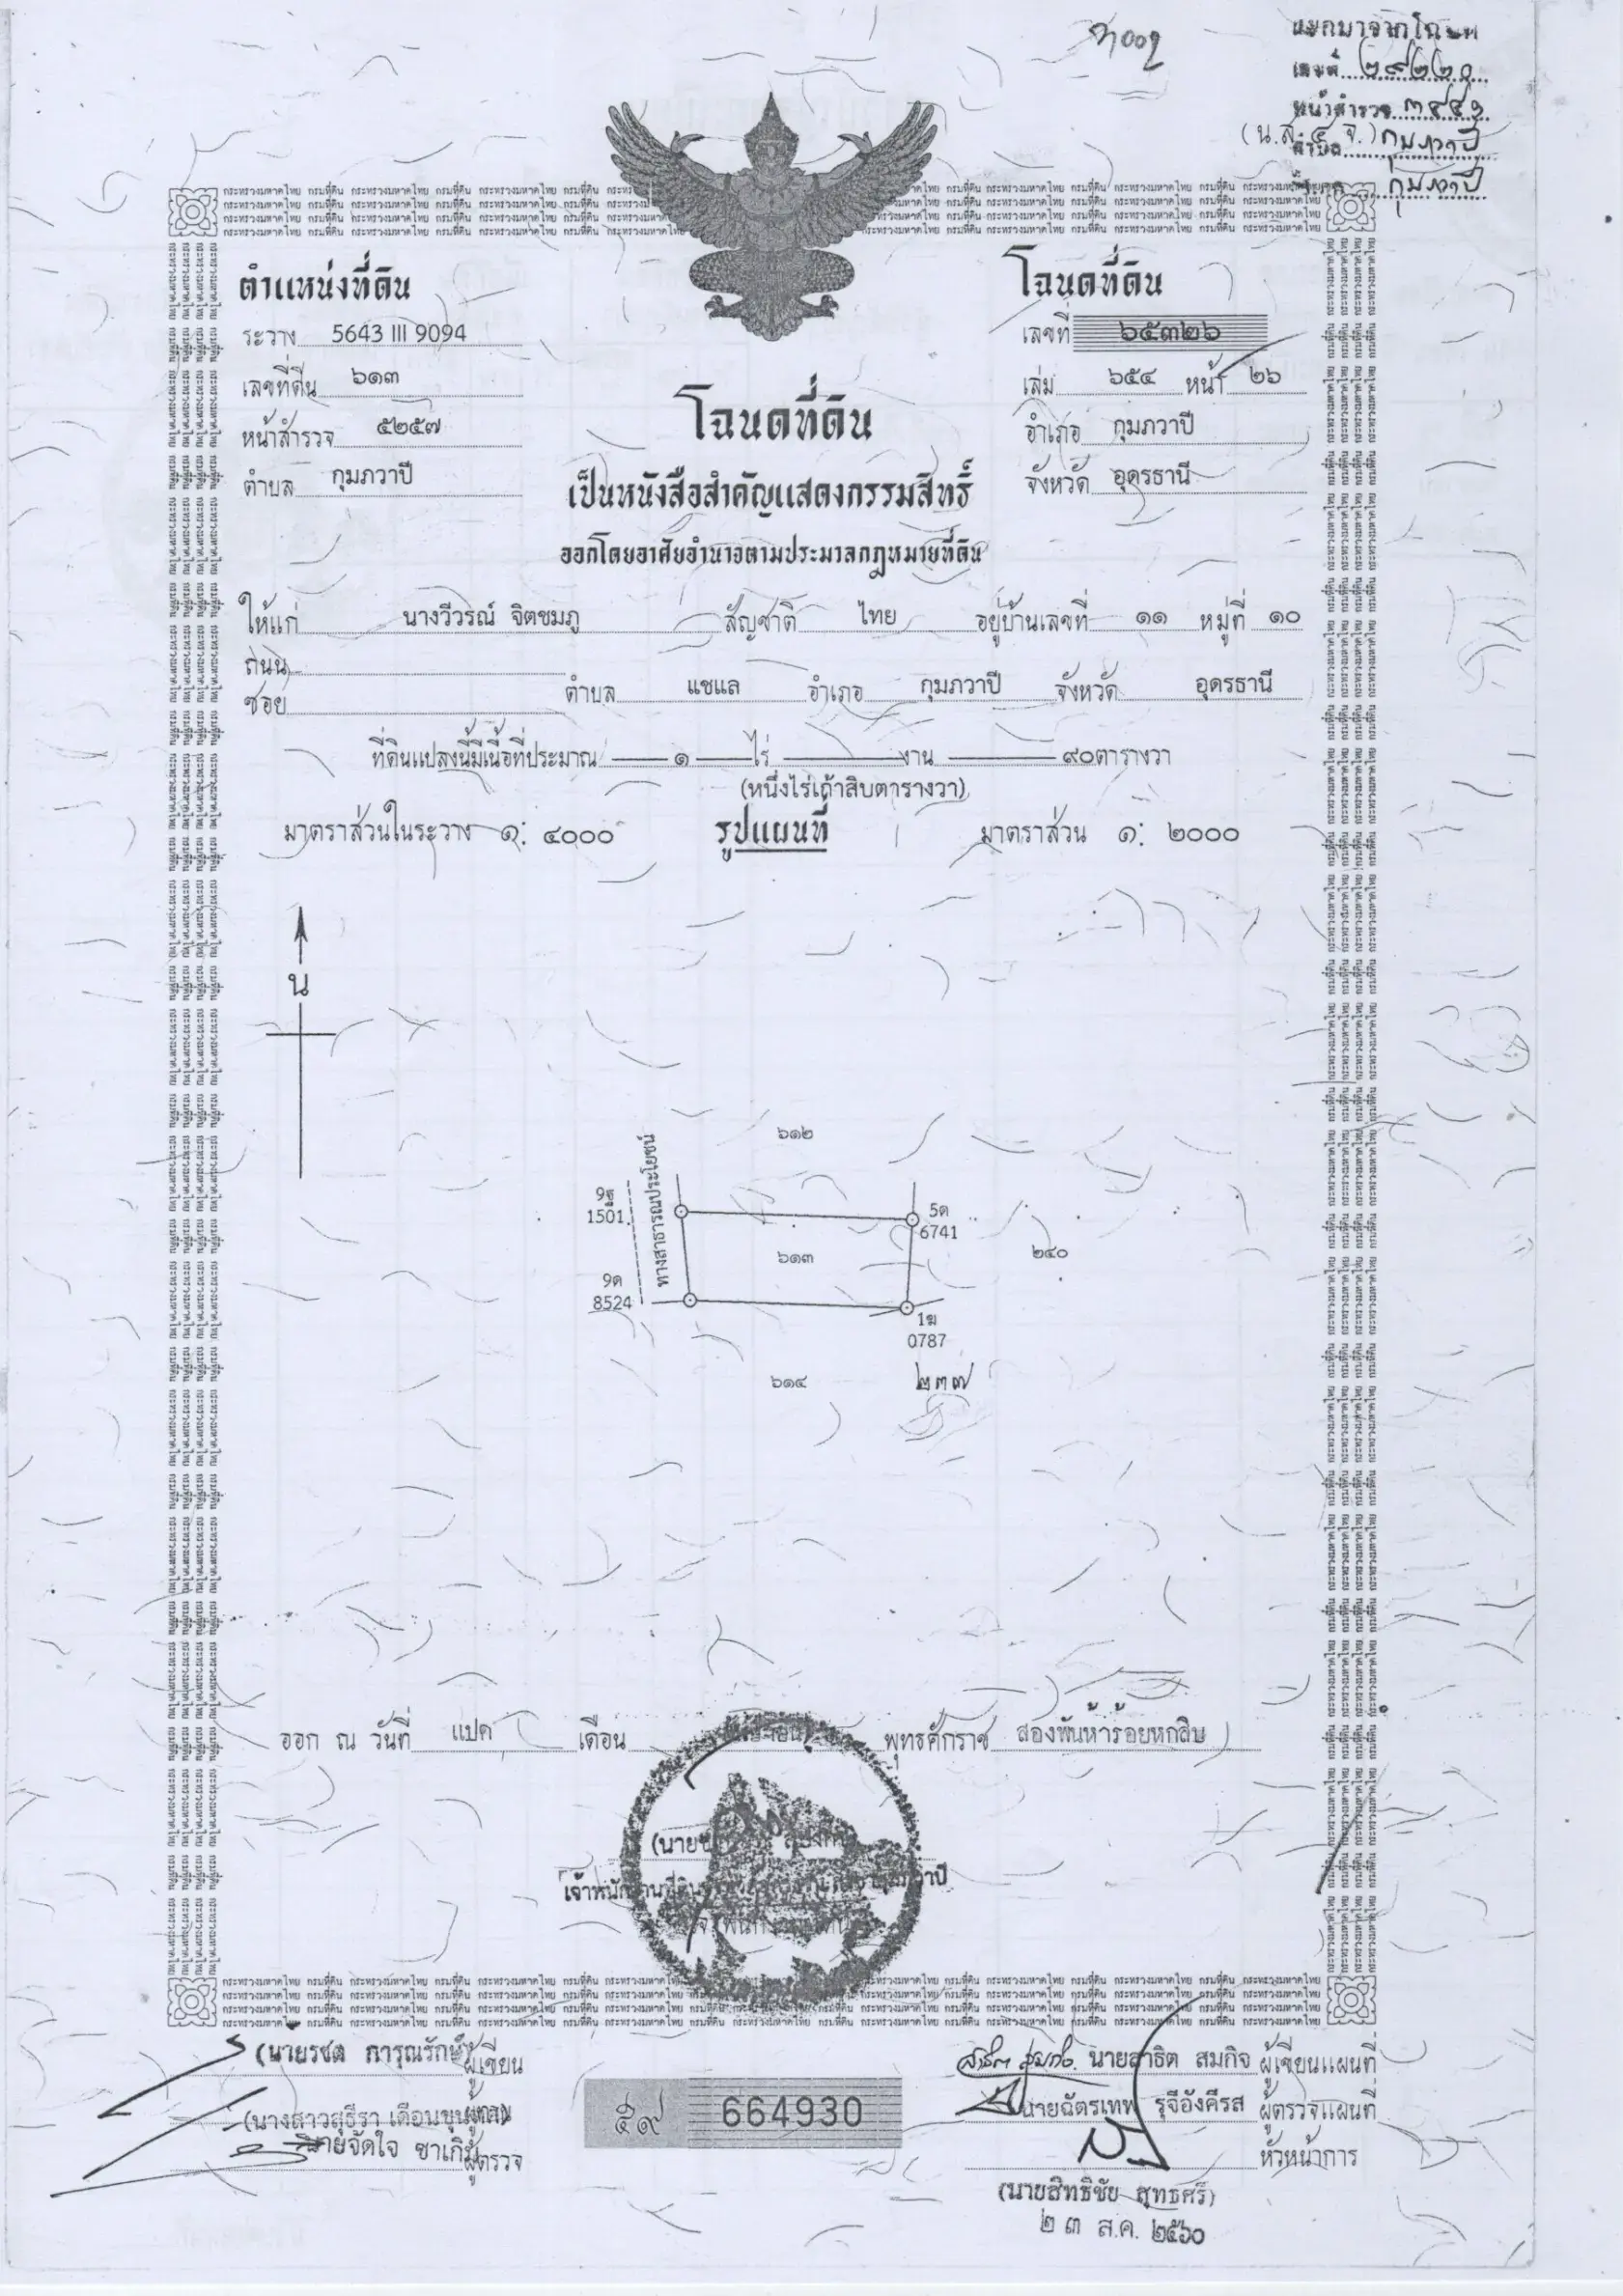 แยกมาจากโฉนด
เลขที่ ๒๙๒๒๐
หน้าสำรวจ ๓๔๔๑
ตำบล กุมภวาปี
กุมภวาปี
ตำแหน่งที่ดิน
ระวาง 5643 III 9094
เลขที่ดิน ๖๑๓
หน้าสำรวจ ๕๒๕๗
ตำบล กุมภวาปี
โฉนดที่ดิน
เลขที่ ๖๕๓๒๖
เล่ม ๖๕๔ หน้า ๒๖
อำเภอ กุมภวาปี
จังหวัด อุดรธานี
โฉนดที่ดิน
เป็นหนังสือสำคัญแสดงกรรมสิทธิ์
ออกโดยอาศัยอำนาจตามประมวลกฎหมายที่ดิน
ให้แก่ นางวีวรณ์ จิตชมภู สัญชาติ ไทย อยู่บ้านเลขที่ ๑๑ หมู่ที่ ๑๐
ถนน
ซอย ตำบล แชแล อำเภอ กุมภวาปี จังหวัด อุดรธานี
ที่ดินแปลงนี้มีเนื้อที่ประมาณ ๑ ไร่ งาน ๙๐ตารางวา
(หนึ่งไร่เก้าสิบตารางวา)
มาตราส่วนในระวาง ๑: ๔๐๐๐ รูปแผนที่ มาตราส่วน ๑: ๒๐๐๐
น
๖๑๒
ทางสาธารณประโยชน์
9ฐ
1501
5ด
6741
๖๑๓
๒๔๐
9ด
8524
1ฆ
0787
๖๑๔
๒๓๗
ออก ณ วันที่ แปด เดือน พุทธศักราช สองพันห้าร้อยหกสิบ
(นายรชต การุณรักษ์) ผู้เขียน
(นางสาวสุธีรา เดือนขุนทด)
นายจัดใจ ชาเกิม ผู้ตรวจ
๕๙ 664930
นายสาธิต สมกิจ ผู้เขียนแผนที่
นายฉัตรเทพ รุจีอังคีรส ผู้ตรวจแผนที่
หัวหน้าการ
(นายสิทธิชัย สุทธศรี)
๒ ๓ ส.ค. ๒๕๖๐